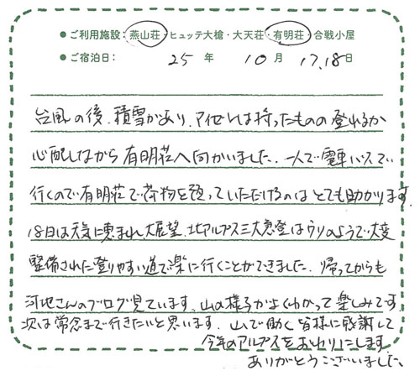 ●ご利用施設：燕山荘・ヒュッテ大槍・大天荘・有明荘・合戦小屋
●ご宿泊日： 25年 10月 17,18日
台風の後、積雪があり、アイゼンは持ったものの登れるか
心配しながら有明荘へ向かいました。一人で電車、バスで
行くので有明荘で荷物を預っていただけるのはとても助かります。
18日は天気に恵まれ大展望、北アルプス三大急登はウソのようで大変
整備された登りやすい道で楽に行くことができました。帰ってからも
河地さんのブログ見ています。山の様子がよくわかって楽しみです。
次は常念まで行きたいと思います。山で働く皆様に感謝して
今年のアルプスをおわりにします。
ありがとうございました。